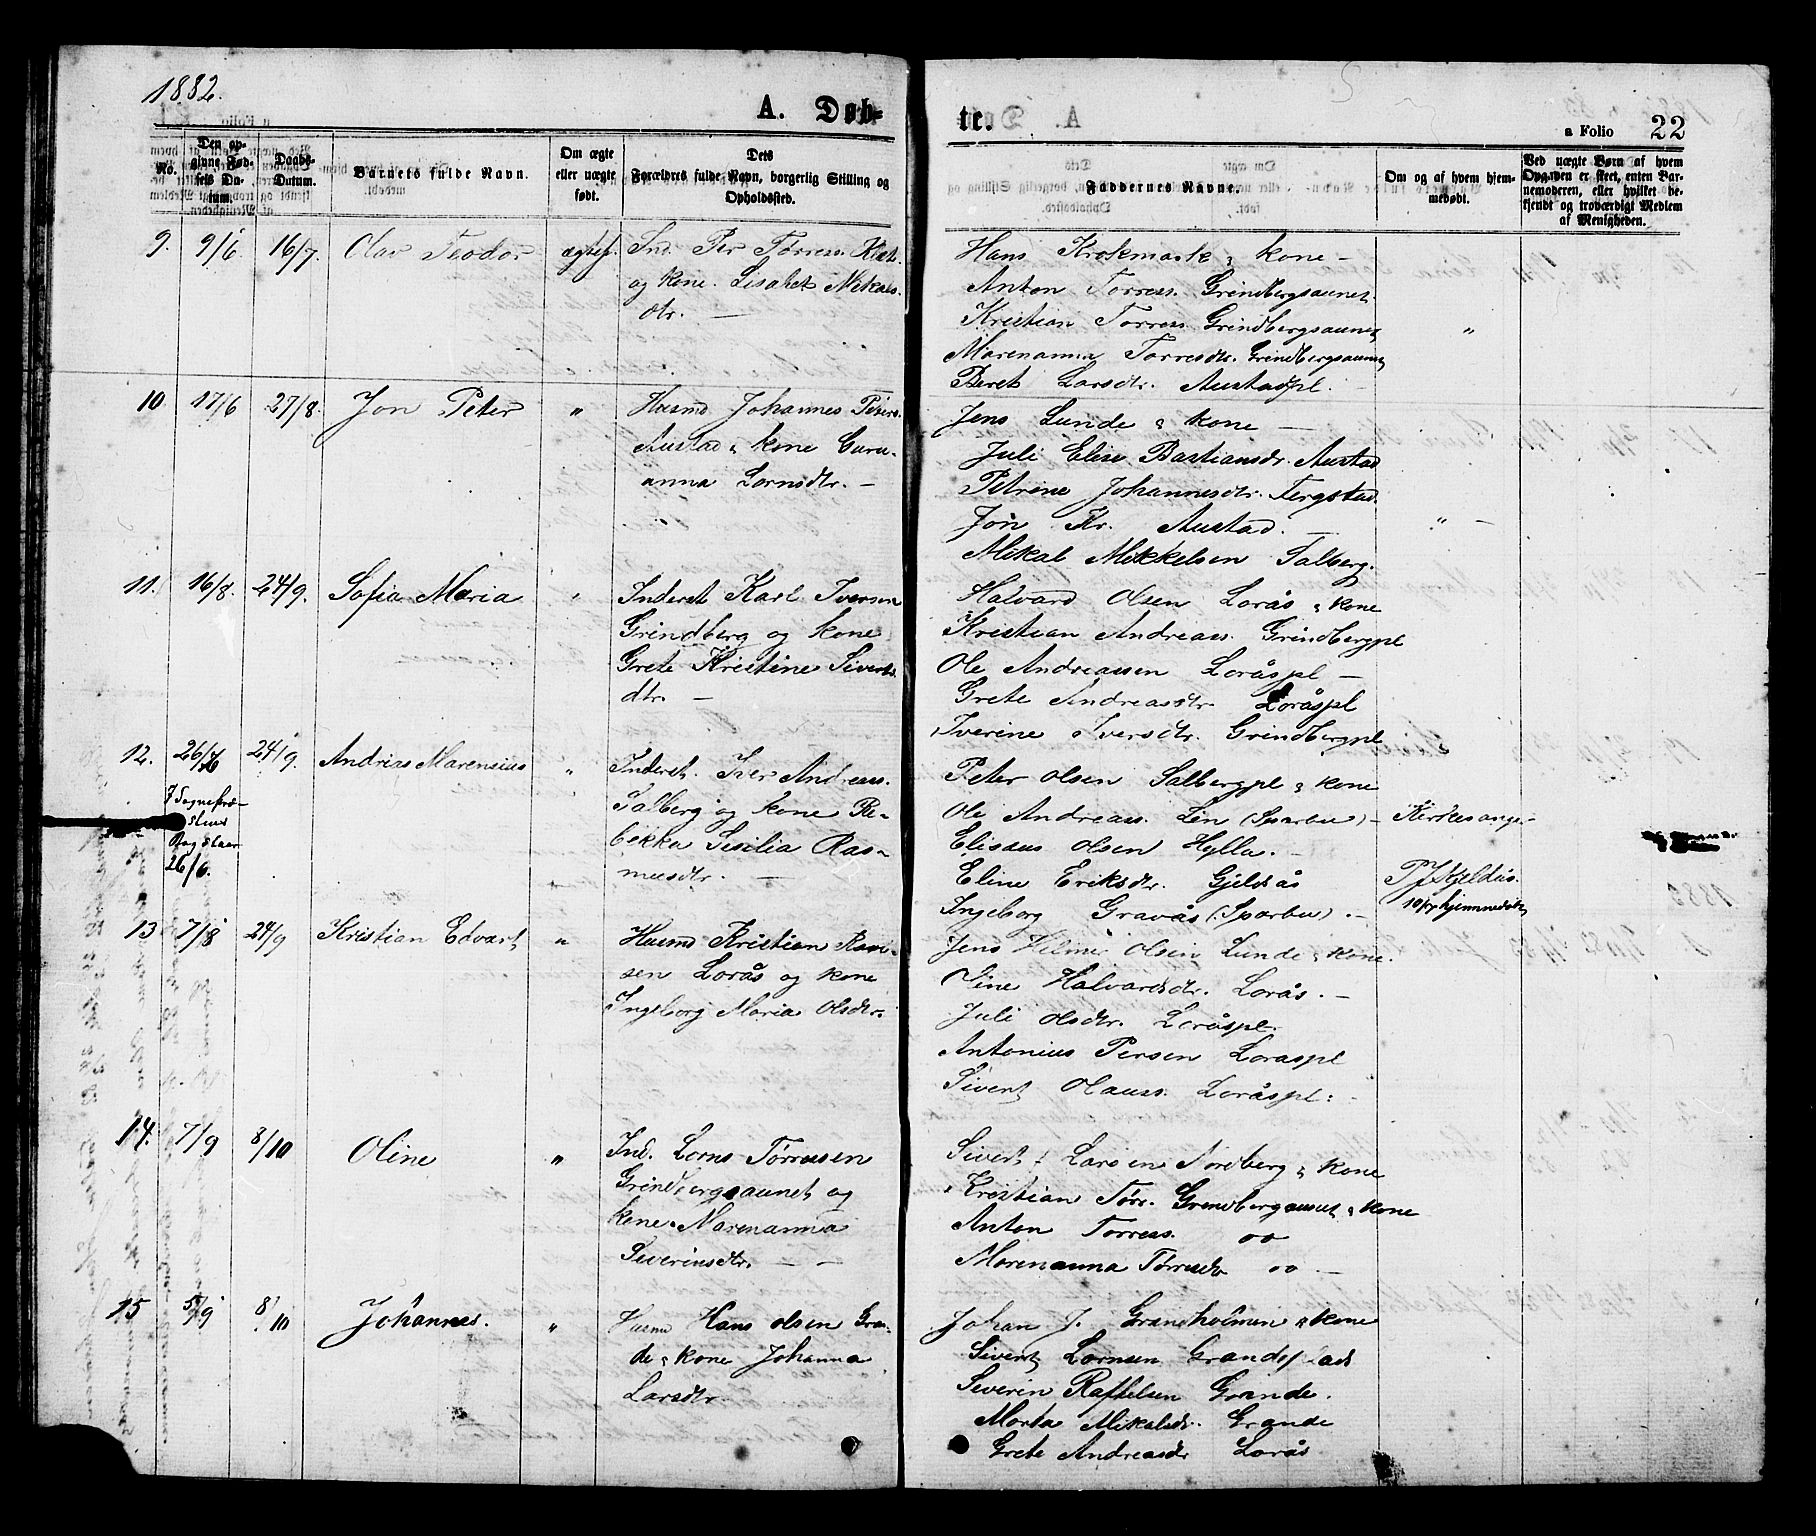 1882.
A. Døb-
te.
a Folio 22
No.
Den op-
givne Fød-
sels Da-
tum.
Daabs-
Datum.
Barnets fulde Navn.
Om ægte
eller uægte
født.
Dets
Forældres fulde Navn, borgerlig Stilling og
Opholdssted.
Faddernes Navne.
Om og af hvem hjem-
medøbt.
Ved uægte Børn af hvem
Opgaven er skeet, enten Bar-
nemoderen, eller hvilket be-
kjendt og troværdigt Medlem
af Menigheden.
9. 9/6 16/7. Olav Teodor
Ind. Per Tørress.
og kone. Lisabet
dtr. —
Hans Krokmark & kone —
Anton Torress. Grindbergsaunet
Kristian Torress. Grindbergsaunet "
Marenanna Torresdtr. Grindbergsaunet
Beret Larsdtr. Austadpl. —
10. 17/6 27/8. Jon Peter "
Husmd Johannes Peters.
Austad & kone Guru-
anna Lornsdtr. —
Jens Lunde & kone —
Juli Elise Bastiansdr. Austad
Petrine Johannesdtr. Tergstad.
Jon Kr. Austad. — " —
Mikal Mikkelsen Salberg.
11. 16/8. 24/9. Sofia Maria "
Inderst Karl Iversen
Grindberg og kone
Grete Kristine Siverts
dtr. —
Halvard Olsen Lorås & kone
Kristian Andreass. Grindbergpl
Ole Andreassen Loråspl —
Grete Andreasdtr. Loråspl
Iverine Iversdtr. Grindbergpl
12. 24/9. Andrias Marensius "
Inderst. Iver Andreas.
Salberg og kone Re-
bekka Sisilia Ras-
musdtr. —
26/6.
Peter Olsen Salbergpl & kone
Ole Andreass. Lein (Sparbu) —
Elisæus Olsen Hylla. —
Eline Eriksdtr. Gjeldsås
Ingeborg Gravås (Sparbu). —
Kirkesanger
P J Kjeldås.
hjemmedøbt
13 7/8 24/9 Kristian Edvart "
Husmd Kristian
sen Lorås og kone
Ingeborg Maria Olsdtr.
Jens Hilmer Olsen Lunde & kone.
Line Halvardsdtr. Lorås. —
Juli Olsdtr. Loråspl.
Antonius Persen Loraspl
Sivert Olauss. Loråspl. —
14. 7/9 8/10 Oline "
Ind. Lorns Tørresen
Grindbergsaunet og
kone Marenanna
Severinsdtr. — —
Sivert Larsen Nordberg & kone
Kristian Tørr. Grindbergaunet & kone
Anton Torress. oo
Marenanna Tørresdtr oo —
15 5/9 8/10 Johannes. "
Husmd Hans Olsen Gran-
de & kone Johanna
Larsdtr.
Johan J. Grandholmen & kone
Sivert Lornsen Grandeplads
Severin Raffelsen Grande.
Marta Mikalsdr. Grande
Grete Andreasdr Lorås